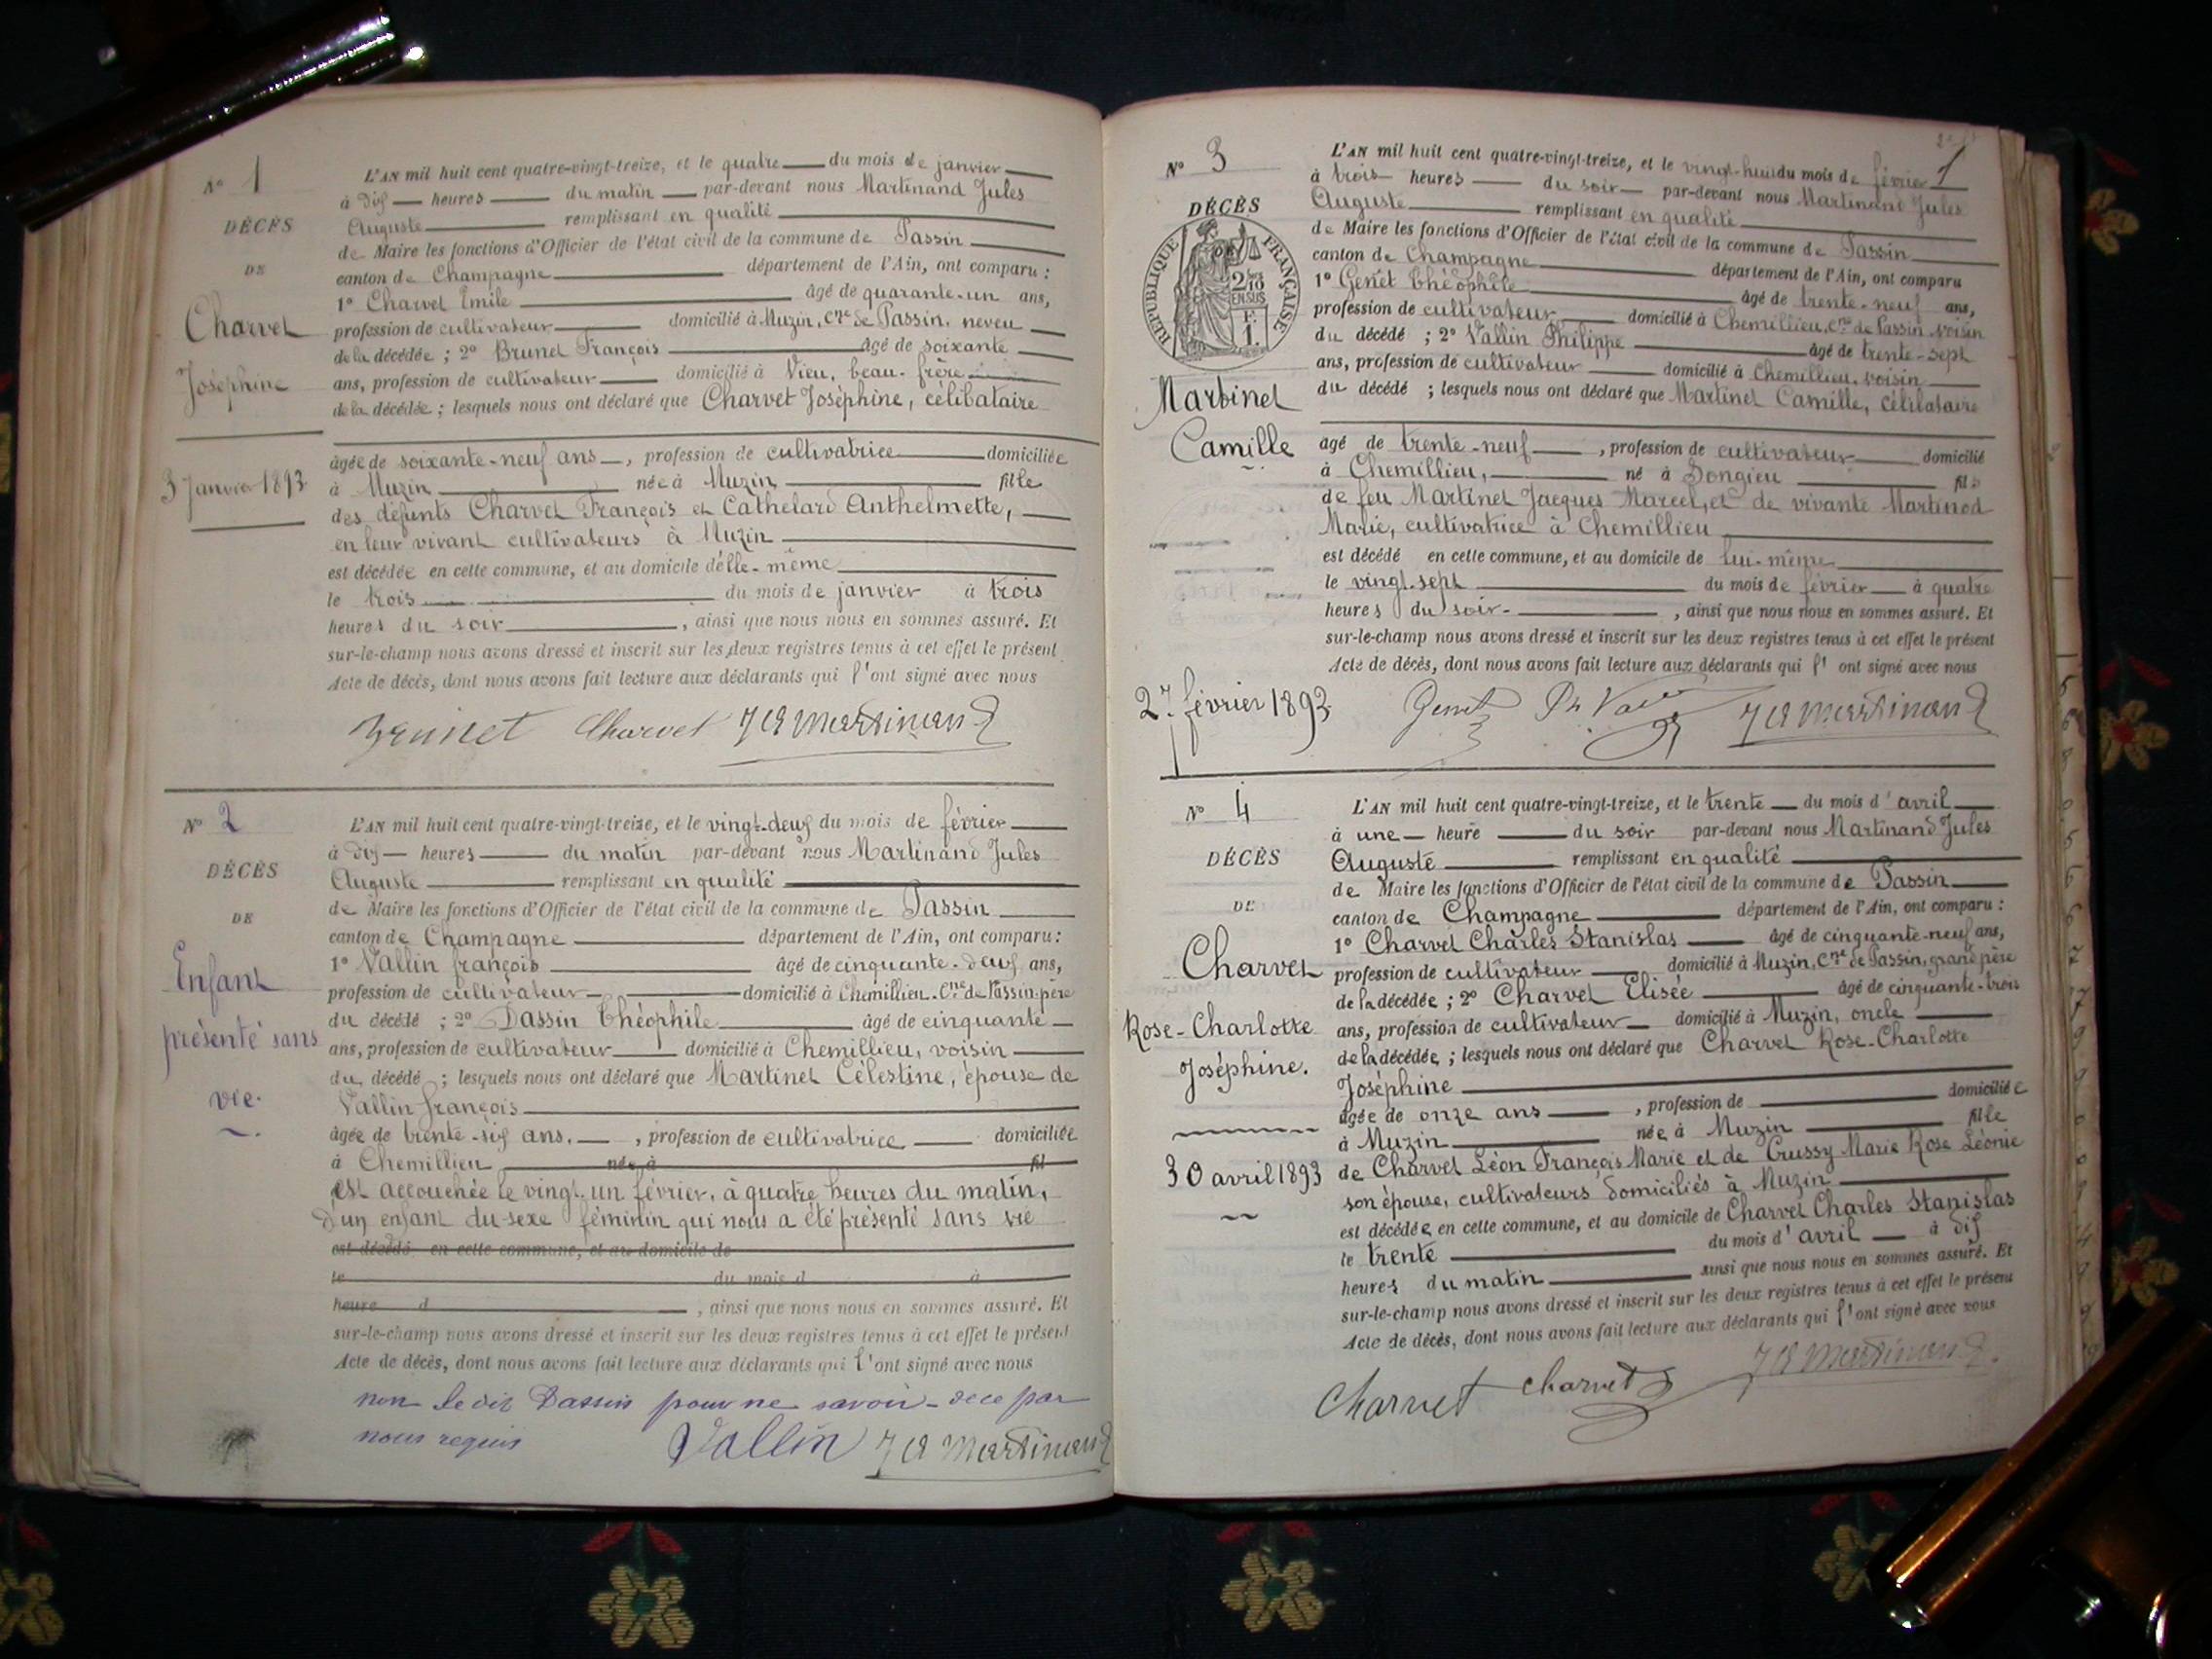 N° 1
DÉCÈS
DE
Charvet
Joséphine
3 Janvier 1893
L'AN mil huit cent quatre-vingt-treize, et le quatre du mois de janvier
à dix heures du matin par-devant nous Martinand Jules
Auguste remplissant en qualité
de Maire les fonctions d'Officier de l'état civil de la commune de Passin
canton de Champagne département de l'Ain, ont comparu :
1° Charvet Emile âgé de quarante-un ans,
profession de cultivateur domicilié à Muzin, Cne de Passin, neveu
de la décédée ; 2° Brunet François âgé de soixante
ans, profession de cultivateur domicilié à Vieu, beau-frère
de la décédée ; lesquels nous ont déclaré que Charvet Joséphine, célibataire
âgée de soixante-neuf ans, profession de cultivatrice domiciliée
à Muzin née à Muzin fille
des défunts Charvet François et Cathelard Anthelmette,
en leur vivant cultivateurs à Muzin
est décédée en cette commune, et au domicile d'elle-même
le trois du mois de janvier à trois
heures du soir, ainsi que nous nous en sommes assuré. Et
sur-le-champ nous avons dressé et inscrit sur les deux registres tenus à cet effet le présent
Acte de décès, dont nous avons fait lecture aux déclarants qui l'ont signé avec nous
Brunet Charvet JA Martinand
N° 2
DÉCÈS
DE
Enfant
présenté sans
vie.
L'AN mil huit cent quatre-vingt-treize, et le vingt-deux du mois de février
à dix heures du matin par-devant nous Martinand Jules
Auguste remplissant en qualité
de Maire les fonctions d'Officier de l'état civil de la commune de Passin
canton de Champagne département de l'Ain, ont comparu :
1° Vallin françois âgé de cinquante-deux ans,
profession de cultivateur domicilié à Chemillieu, Cne de Passin, père
du décédé ; 2° Dassin Théophile âgé de cinquante
ans, profession de cultivateur domicilié à Chemillieu, voisin
du décédé ; lesquels nous ont déclaré que Martinet Célestine, épouse de
Vallin françois
âgée de trente-six ans, profession de cultivatrice domiciliée
à Chemillieu née à fil
est accouchée le vingt-un février, à quatre heures du matin,
d'un enfant du sexe féminin qui nous a été présenté sans vie
est décédé en cette commune, et au domicile de
le du mois d à
heure d , ainsi que nous nous en sommes assuré. Et
sur-le-champ nous avons dressé et inscrit sur les deux registres tenus à cet effet le présent
Acte de décès, dont nous avons fait lecture aux déclarants qui l'ont signé avec nous
non le dit Dassin pour ne savoir de ce par
nous requis Vallin JA Martinand
1
N° 3
DÉCÈS
RÉPUBLIQUE FRANÇAISE
2/10
EN SUS
F.
1.
Martinet
Camille
27 février 1893
L'AN mil huit cent quatre-vingt-treize, et le vingt-huit du mois de février
à trois heures du soir par-devant nous Martinand Jules
Auguste remplissant en qualité
de Maire les fonctions d'Officier de l'état civil de la commune de Passin
canton de Champagne département de l'Ain, ont comparu
1° Genet Théophile âgé de trente-neuf ans,
profession de cultivateur domicilié à Chemillieu, Cne de Passin voisin
du décédé ; 2° Vallin Philippe âgé de trente-sept
ans, profession de cultivateur domicilié à Chemillieu, voisin
du décédé ; lesquels nous ont déclaré que Martinet Camille, célibataire
agé de trente-neuf, profession de cultivateur domicilié
à Chemillieu, né à Songieu fils
de feu Martinet Jacques Marcel, et de vivante Martinod
Marie, cultivatrice à Chemillieu
est décédé en cette commune, et au domicile de lui-même
le vingt-sept du mois de février à quatre
heures du soir, ainsi que nous nous en sommes assuré. Et
sur-le-champ nous avons dressé et inscrit sur les deux registres tenus à cet effet le présent
Acte de décès, dont nous avons fait lecture aux déclarants qui l'ont signé avec nous
Genet Ph Vallin JA Martinand
N° 4
DÉCÈS
DE
Charvet
Rose-Charlotte
Joséphine.
30 avril 1893
L'AN mil huit cent quatre-vingt-treize, et le trente du mois d'avril
à une heure du soir par-devant nous Martinand Jules
Auguste remplissant en qualité
de Maire les fonctions d'Officier de l'état civil de la commune de Passin
canton de Champagne département de l'Ain, ont comparu :
1° Charvet Charles Stanislas âgé de cinquante-neuf ans,
profession de cultivateur domicilié à Muzin, Cne de Passin, grand père
de la décédée ; 2° Charvet Elisée âgé de cinquante-trois
ans, profession de cultivateur domicilié à Muzin, oncle
de la décédée ; lesquels nous ont déclaré que Charvet Rose-Charlotte
Joséphine
âgée de onze ans, profession de domiciliée
à Muzin née à Muzin fille
de Charvet Léon François Marie et de Crussy Marie Rose Léonie
son épouse, cultivateurs domiciliés à Muzin
est décédée en cette commune, et au domicile de Charvet Charles Stanislas
le trente du mois d'avril à dix
heures du matin ainsi que nous nous en sommes assuré. Et
sur-le-champ nous avons dressé et inscrit sur les deux registres tenus à cet effet le présent
Acte de décès, dont nous avons fait lecture aux déclarants qui l'ont signé avec nous
Charvet Charvet JA Martinand